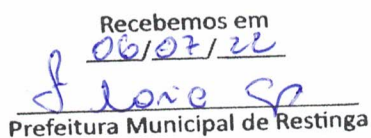 Recebemos em
06/07/22
Prefeitura Municipal de Restinga